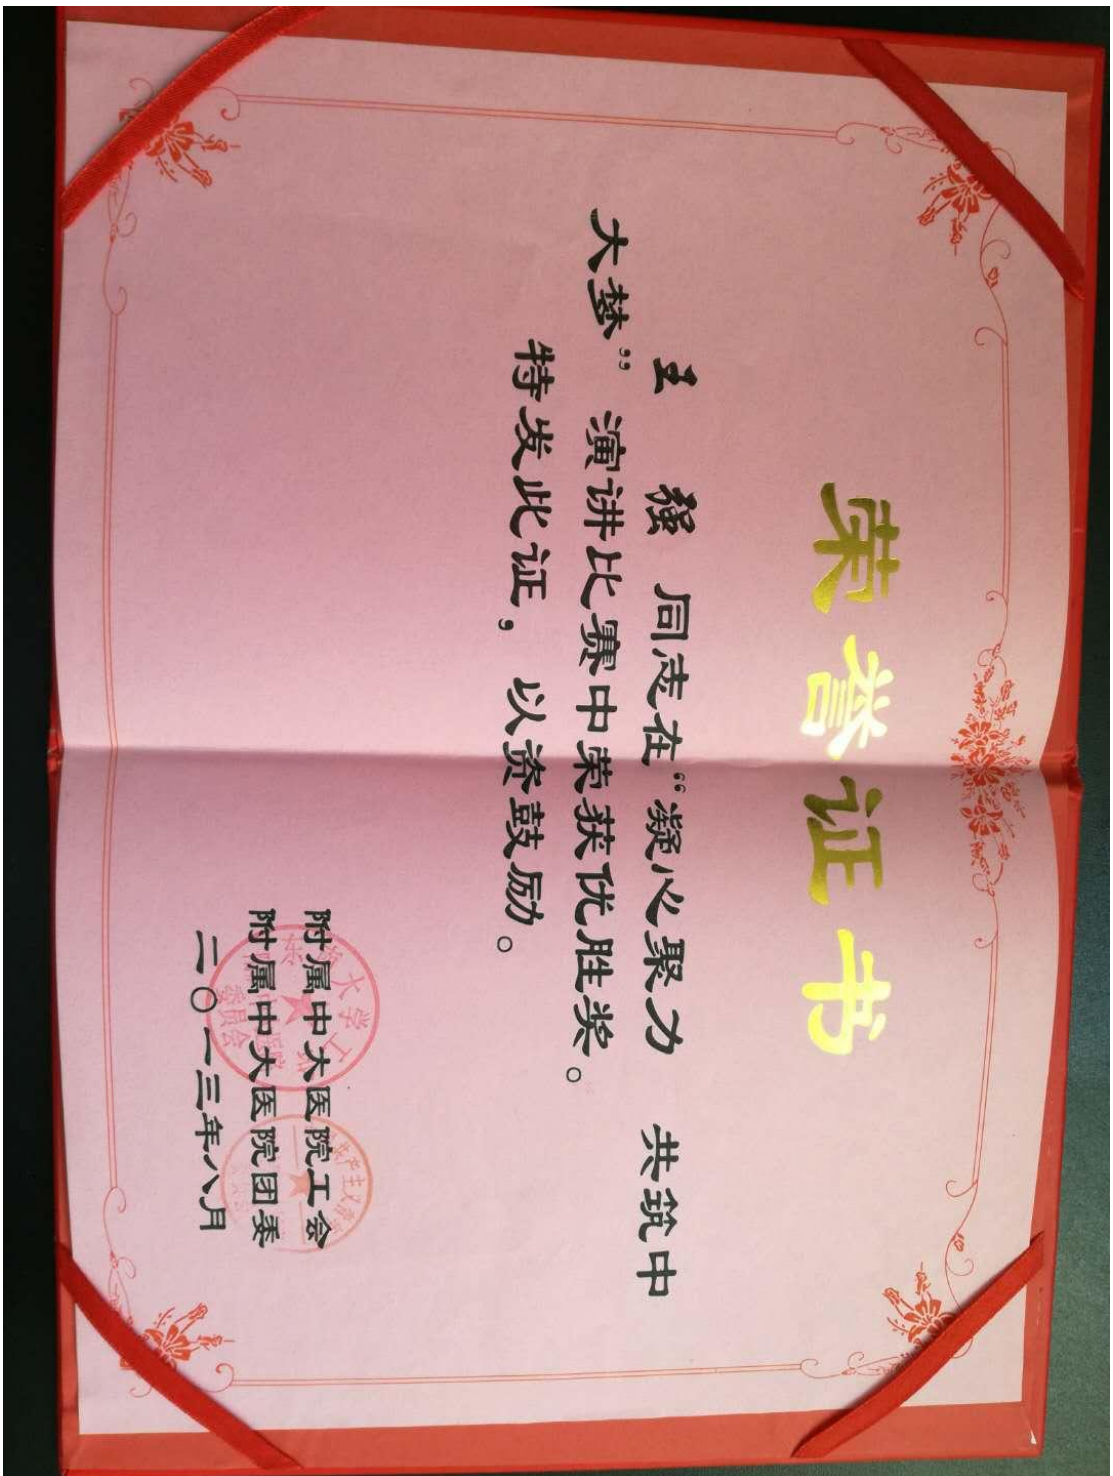 荣誉证书
王 强 同志在“凝心聚力 共筑中
大梦” 演讲比赛中荣获优胜奖。
特发此证，以资鼓励。
附属中大医院工会
附属中大医院团委
二〇一三年八月